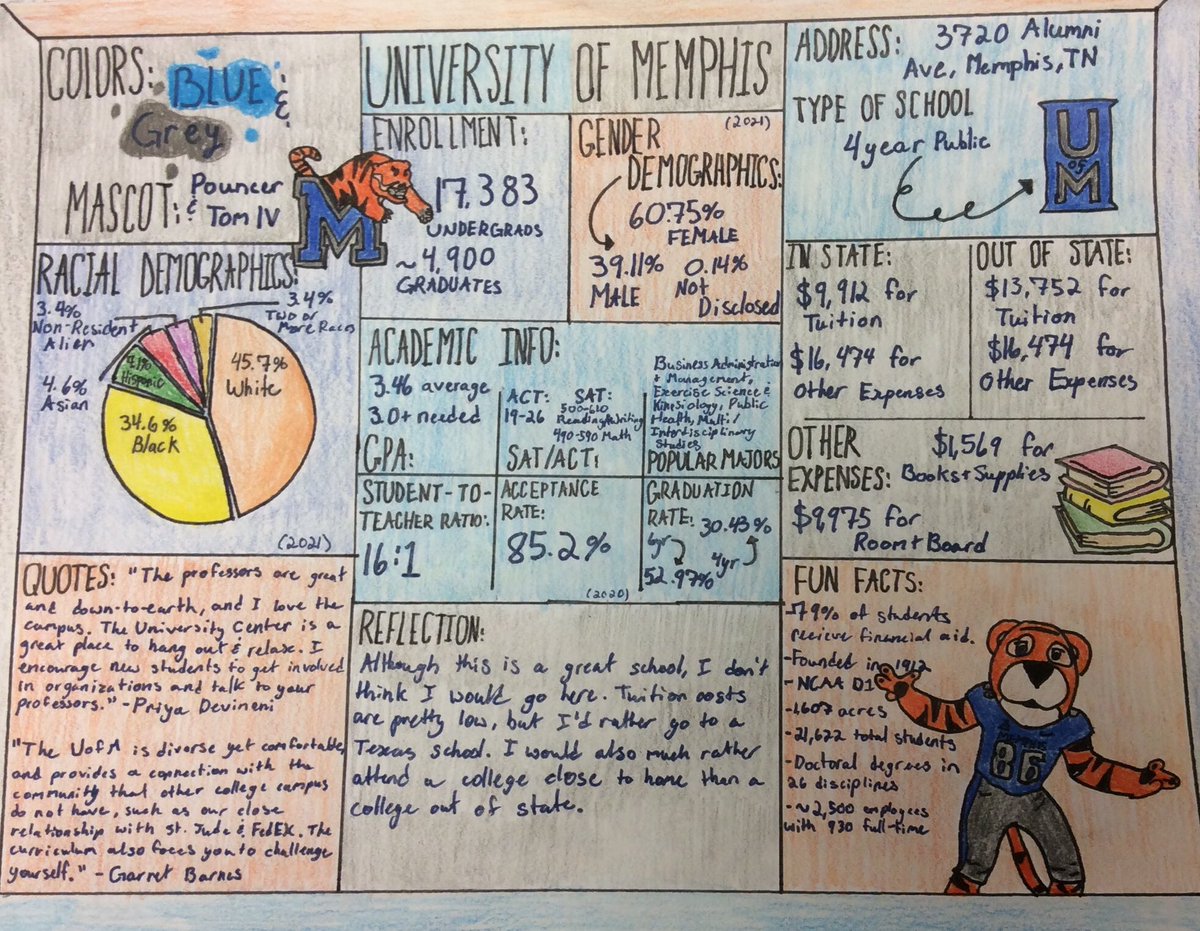 COLORS:
BLUE &
Grey
MASCOT: Pouncer
& Tom IV
M
UNIVERSITY OF MEMPHIS
ENROLLMENT:
17,383
UNDERGRADS
~4,900
GRADUATES
(2021)
GENDER
DEMOGRAPHICS:
60.75%
FEMALE
39.11%
MALE
0.14%
Not
Disclosed
ADDRESS: 3720 Alumni
Ave, Memphis, TN
TYPE OF SCHOOL
4 year Public
U
OF
M
RACIAL DEMOGRAPHICS:
3.4%
Non-Resident
Alien
3.4%
Two or
More Races
4.6%
Asian
7.1%
Hispanic
45.7%
White
34.6%
Black
(2021)
ACADEMIC INFO:
3.46 average
3.0+ needed
GPA:
ACT:
19-26
SAT:
500-610
Reading/Writing
490-590 Math
SAT/ACT:
Business Administration
+ Management,
Exercise Science &
Kinesiology, Public
Health, Multi/
Interdisciplinary
Studies
POPULAR MAJORS
STUDENT-TO-
TEACHER RATIO:
16:1
ACCEPTANCE
RATE:
85.2%
GRADUATION
RATE: 30.43%
6yr
4yr
52.97%
(2020)
IN STATE:
$9,912 for
Tuition
$16,474 for
Other Expenses
OUT OF STATE:
$13,752 for
Tuition
$16,474 for
Other Expenses
OTHER
EXPENSES:
$1,569 for
Books + Supplies
$9975 for
Room + Board
QUOTES: "The professors are great
and down-to-earth, and I love the
campus. The University Center is a
great place to hang out & relax. I
encourage new students to get involved
in organizations and talk to your
professors." - Priya Devineni
"The UofM is diverse yet comfortable,
and provides a connection with the
community that other college campus
do not have, such as our close
relationship with St. Jude & FedEX. The
curriculum also foces you to challenge
yourself." - Garret Barnes
REFLECTION:
Although this is a great school, I don't
think I would go here. Tuition costs
are pretty low, but I'd rather go to a
Texas school. I would also much rather
attend a college close to home than a
college out of state.
FUN FACTS:
-79% of students
recieve financial aid.
-Founded in 1912
-NCAA D1
-1607 acres
-21,622 total students
-Doctoral degrees in
26 disciplines
-~2,500 employees
with 930 full-time
86